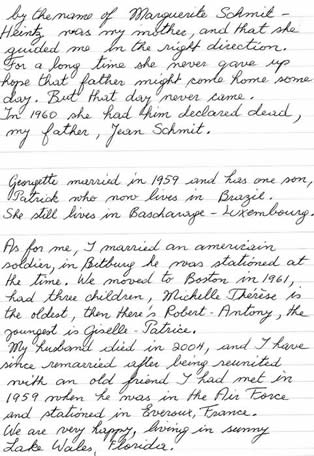 by the name of Marguerite Schmit -
Heintz was my mother, and that she
guided me in the right direction.
For a long time she never gave up
hope that father might come home some
day. But that day never came.
In 1960 she had him declared dead,
my father, Jean Schmit.
Georgette married in 1959 and has one son,
Patrick who now lives in Brazil.
She still lives in Bascharage - Luxembourg.
As for me, I married an americain
soldier, in Bitburg he was stationed at
the time. We moved to Boston in 1961,
had three children, Michelle Thérèse is
the oldest, then there's Robert - Antony, the
youngest is Giselle - Patrice.
My husband died in 2004, and I have
since remarried after being reunited
with an old friend I had met in
1959 when he was in the Air Force
and stationed in Evreux, France.
We are very happy, living in sunny
Lake Wales, Florida.